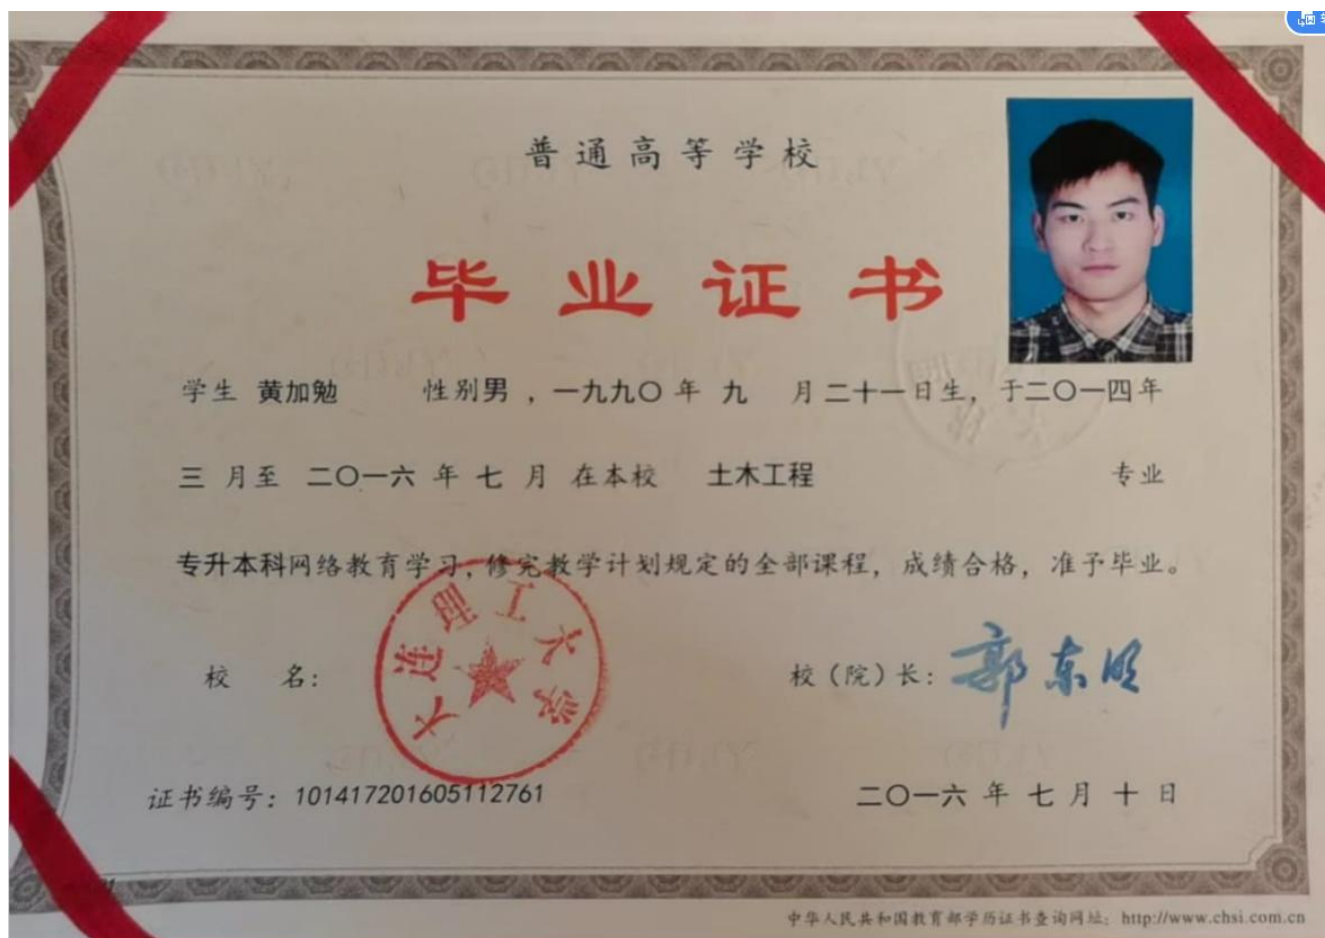 普通高等学校
毕业证书
学生 黄加勉 性别男，一九九〇年 九 月二十一日生，于二〇一四年
三 月至 二〇一六 年 七 月 在本校 土木工程 专业
专升本科网络教育学习，修完教学计划规定的全部课程，成绩合格，准予毕业。
大连理工大学
校 名： 校（院）长：郭东明
证书编号：101417201605112761 二〇一六 年 七 月 十 日
中华人民共和国教育部学历证书查询网址：http://www.chsi.com.cn